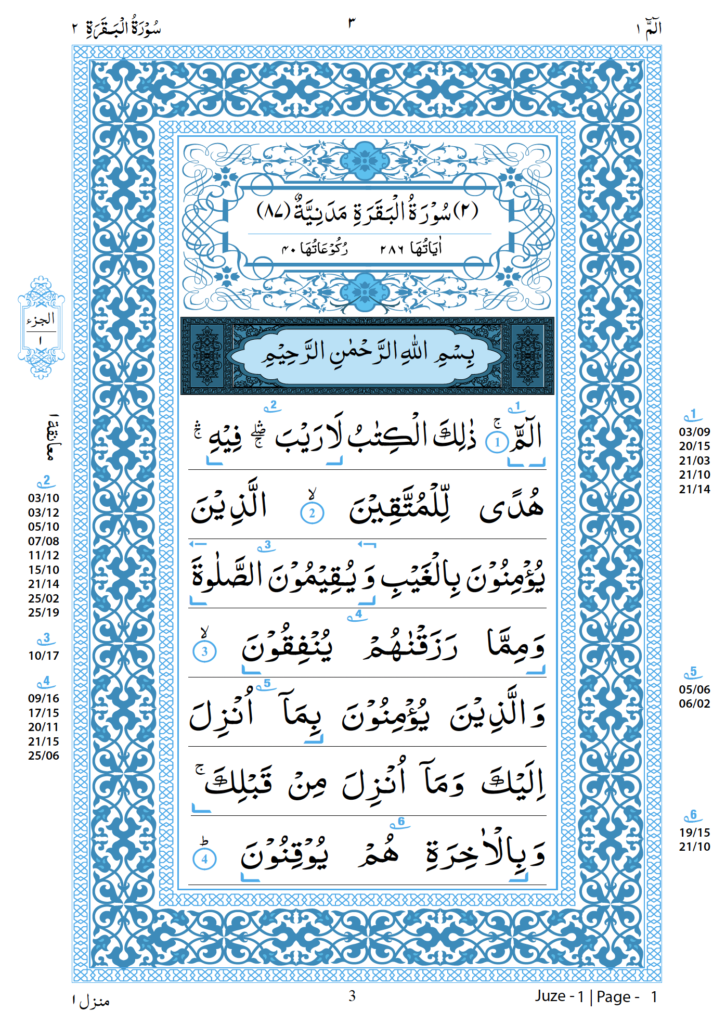 الٓمّٓ ۱
۳
سُوْرَةُ الْبَقَرَةِ ۲
(۲) سُوْرَةُ الْبَقَرَةِ مَدَنِيَّةٌ (۸۷)
اٰيَاتُهَا ۲۸۶ رُكُوْعَاتُهَا ۴۰
بِسْمِ اللهِ الرَّحْمٰنِ الرَّحِيْمِ
الٓمّٓ ۚ 1 ذٰلِكَ الْكِتٰبُ لَا رَيْبَ ۛۖ فِيْهِ ۛۚ
هُدًى لِّلْمُتَّقِيْنَ ۙ 2 الَّذِيْنَ
يُؤْمِنُوْنَ بِالْغَيْبِ وَيُقِيْمُوْنَ الصَّلٰوةَ
وَمِمَّا رَزَقْنٰهُمْ يُنْفِقُوْنَ ۙ 3
وَالَّذِيْنَ يُؤْمِنُوْنَ بِمَآ اُنْزِلَ
اِلَيْكَ وَمَآ اُنْزِلَ مِنْ قَبْلِكَ ۚ
وَبِالْاٰخِرَةِ هُمْ يُوْقِنُوْنَ ؕ 4
1
03/09
20/15
21/03
21/10
21/14
5
05/06
06/02
6
19/15
21/10
الجزء
۱
معانقة ۱
2
03/10
03/12
05/10
07/08
11/12
15/10
21/14
25/02
25/19
3
10/17
4
09/16
17/15
20/11
21/15
25/06
منزل ۱
3
Juze - 1 | Page - 1